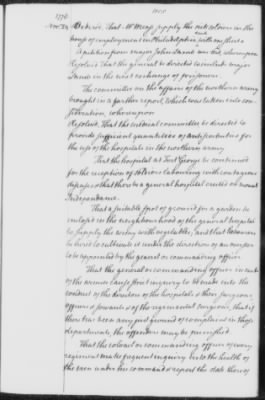 1776
Nov. 29
Ordered, That Mr Mease supply the sick soldiers in the
A petition from major John Dark was read, whereupon
Resolved That the general be directed to include major
Dark in the next exchange of prisoners.
The committee on the affairs of the northern army
brought in a farther report, which was taken into con-
sideration, whereupon
Resolved, That the medical committee be directed to
provide sufficient quantities of
the use of the hospitals in the northern army.
That the hospital at Fort George be continued
for the reception of soldiers labouring with contagious
diseases & that there be a general hospital erected on mount
Independance.
That a suitable spot of ground for a garden be
inclosed in the neighbourhood of the general hospital
to supply the army with vegetables, and that
be hired to cultivate it under the direction of a person
to be appointed by the general or commanding officer.
That the general or commanding officer in each
of the armies cause strict enquiry to be made into the
conduct of the directors of the hospitals & their surgeons
officers & servants & of the regimental surgeons, that if
there has been any just ground of complaint in those
departments, the offenders may be punished.
That the colonel or commanding officer of every
regiment make frequent enquiry into the health of
the men under his command & report the state thereof